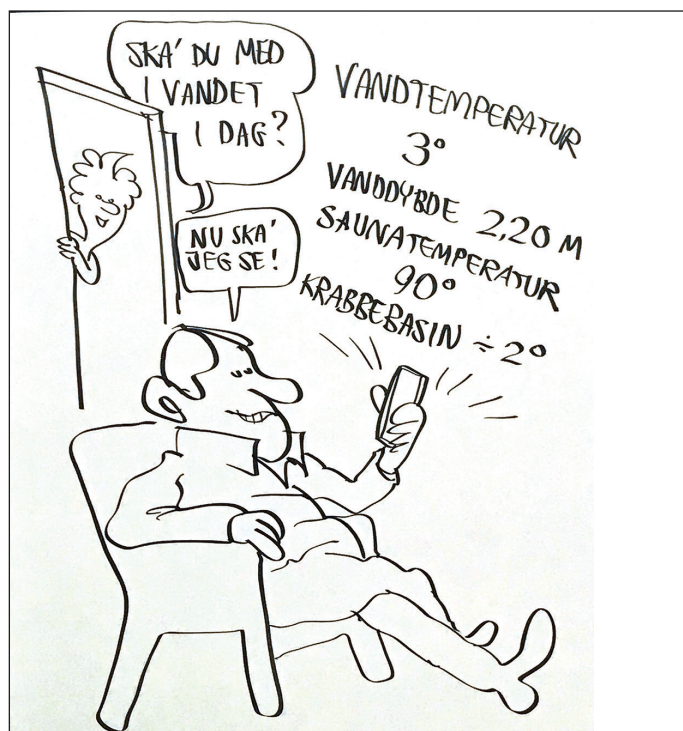 SKA' DU MED
I VANDET
I DAG?
NU SKA'
JEG SE!
VANDTEMPERATUR
3°
VANDDYBDE 2,20 M
SAUNATEMPERATUR
90°
KRABBEBASIN ÷2°